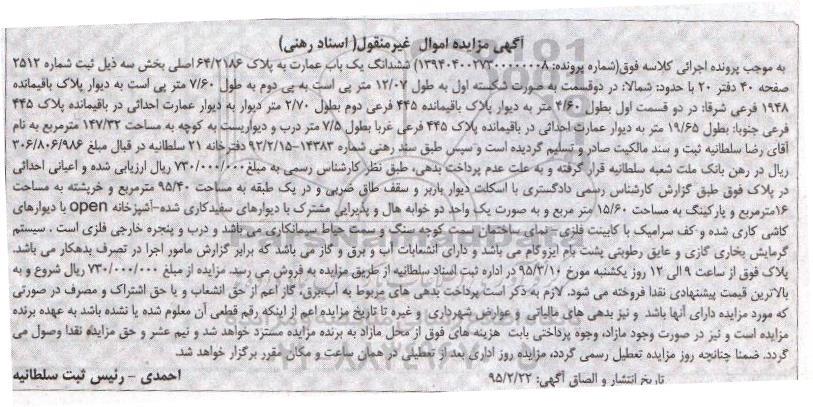 آگهی مزایده اموال غیرمنقول( اسناد رهنی)
به موجب پرونده اجرائی کلاسه فوق(شماره پرونده: ۱۳۹۴۰۴۰۰۲۷۳۰۰۰۰۰۰۸) ششدانگ یک باب عمارت به پلاک ۶۴/۲۱۸۶ اصلی بخش سه ذیل ثبت شماره ۲۵۱۲
صفحه ۴۰ دفتر ۲۰ با حدود: شمالا: در دوقسمت به صورت شکسته اول به طول ۱۲/۰۷ متر پی است به پی دوم به طول ۷/۶۰ متر پی است به دیوار پلاک باقیمانده
۱۹۴۸ فرعی شرقا: در دو قسمت اول بطول ۴/۶۰ متر به دیوار پلاک باقیمانده ۴۴۵ فرعی دوم بطول ۲/۷۰ متر دیوار به دیوار عمارت احداثی در باقیمانده پلاک ۴۴۵
فرعی جنوبا: بطول ۱۹/۶۵ متر به دیوار عمارت احداثی در باقیمانده پلاک ۴۴۵ فرعی غربا بطول ۷/۵ متر درب و دیواریست به کوچه به مساحت ۱۴۷/۳۲ مترمربع به نام
آقای رضا سلطانیه ثبت و سند مالکیت صادر و تسلیم گردیده است و سپس طبق سند رهنی شماره ۱۴۳۸۳-۹۲/۲/۱۵ دفترخانه ۲۱ سلطانیه در قبال مبلغ ۳۰۶/۸۰۶/۹۸۶
ریال در رهن بانک ملت شعبه سلطانیه قرار گرفته و به علت عدم پرداخت بدهی، طبق نظر کارشناس رسمی به مبلغ ۷۳۰/۰۰۰/۰۰۰ ریال ارزیابی شده و اعیانی احداثی
در پلاک فوق طبق گزارش کارشناس رسمی دادگستری با اسکلت دیوار باربر و سقف طاق ضربی و در یک طبقه به مساحت ۹۵/۴۰ مترمربع و خرپشته به مساحت
۱۶مترمربع و پارکینگ به مساحت ۱۵/۶۰ متر مربع و به صورت یک واحد دو خوابه هال و پذیرایی مشترک با دیوارهای سفیدکاری شده-آشپزخانه open با دیوارهای
کاشی کاری شده و کف سرامیک با کابینت فلزی- نمای ساختمان سمت کوچه سنگ و سمت حیاط سیمانکاری می باشد و درب و پنجره خارجی فلزی است . سیستم
گرمایش بخاری گازی و عایق رطوبتی پشت بام ایزوگام می باشد و دارای انشعابات آب و برق و گاز می باشد که برابر گزارش مامور اجرا در تصرف بدهکار می باشد.
پلاک فوق از ساعت ۹ الی ۱۲ روز یکشنبه مورخ ۹۵/۳/۱۰ در اداره ثبت اسناد سلطانیه از طریق مزایده به فروش می رسد. مزایده از مبلغ ۷۳۰/۰۰۰/۰۰۰ ریال شروع و به
بالاترین قیمت پیشنهادی نقدا فروخته می شود. لازم به ذکر است پرداخت بدهی های مربوط به آب،برق، گاز اعم از حق انشعاب و یا حق اشتراک و مصرف در صورتی
که مورد مزایده دارای آنها باشد و نیز بدهی های مالیاتی و عوارض شهرداری و غیره تا تاریخ مزایده اعم از اینکه رقم قطعی آن معلوم شده یا نشده باشد به عهده برنده
مزایده است و نیز در صورت وجود مازاد، وجوه پرداختی بابت هزینه های فوق از محل مازاد به برنده مزایده مسترد خواهد شد و نیم عشر و حق مزایده نقدا وصول می
گردد. ضمنا چنانچه روز مزایده تعطیل رسمی گردد، مزایده روز اداری بعد از تعطیلی در همان ساعت و مکان مقرر برگزار خواهد شد.
تاریخ انتشار و الصاق آگهی: ۹۵/۲/۲۲ احمدی - رئیس ثبت سلطانیه